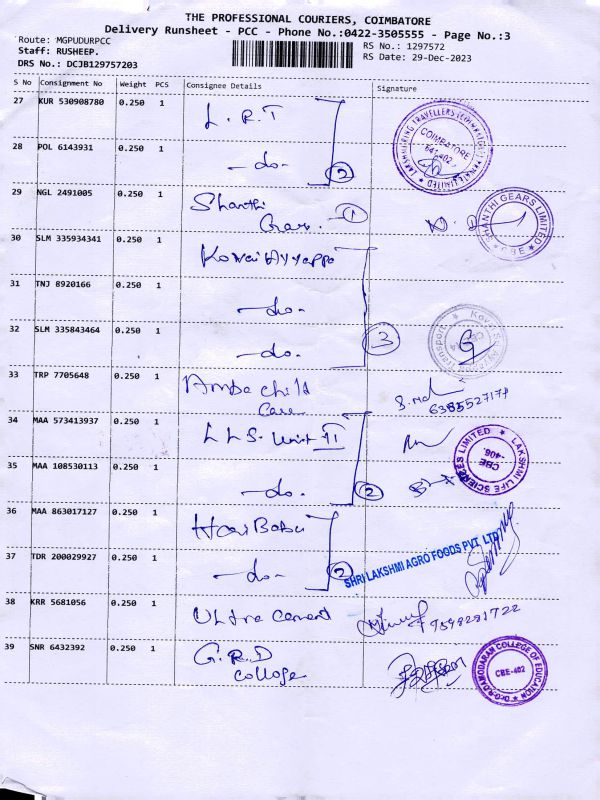 THE PROFESSIONAL COURIERS, COIMBATORE
Delivery Runsheet - PCC - Phone No.:0422-3505555 - Page No.:3
Route: MGPUDURPCC
Staff: RUSHEEP.
DRS No.: DCJB129757203
RS No.: 1297572
RS Date: 29-Dec-2023
S No Consignment No Weight PCS Consignee Details Signature
27 KUR 530908780 0.250 1 L.R.T
28 POL 6143931 0.250 1 -do- 2
COIMBATORE
641 402
29 NGL 2491005 0.250 1 Shanthi Gears. 1
SHANTHI GEARS LIMITED
CBE
30 SLM 335934341 0.250 1 Kovai Ayyappa
31 TNJ 8920166 0.250 1 -do-
32 SLM 335843464 0.250 1 -do- 3
33 TRP 7705648 0.250 1 Amba Child Care
34 MAA 573413937 0.250 1 L L S. Unit II
35 MAA 108530113 0.250 1 -do- 2
LAKSHMI LIFE SCIENCES LIMITED
CBE
-406.
36 MAA 863017127 0.250 1 Hari Babu
37 TDR 200029927 0.250 1 -do- 2
SHRI LAKSHMI AGRO FOODS PVT. LTD
38 KRR 5681056 0.250 1 Ultra cement
9598281722
39 SNR 6432392 0.250 1 G.R.D college
Dr.G.R.DAMODARAN COLLEGE OF EDUCATION
CBE-402